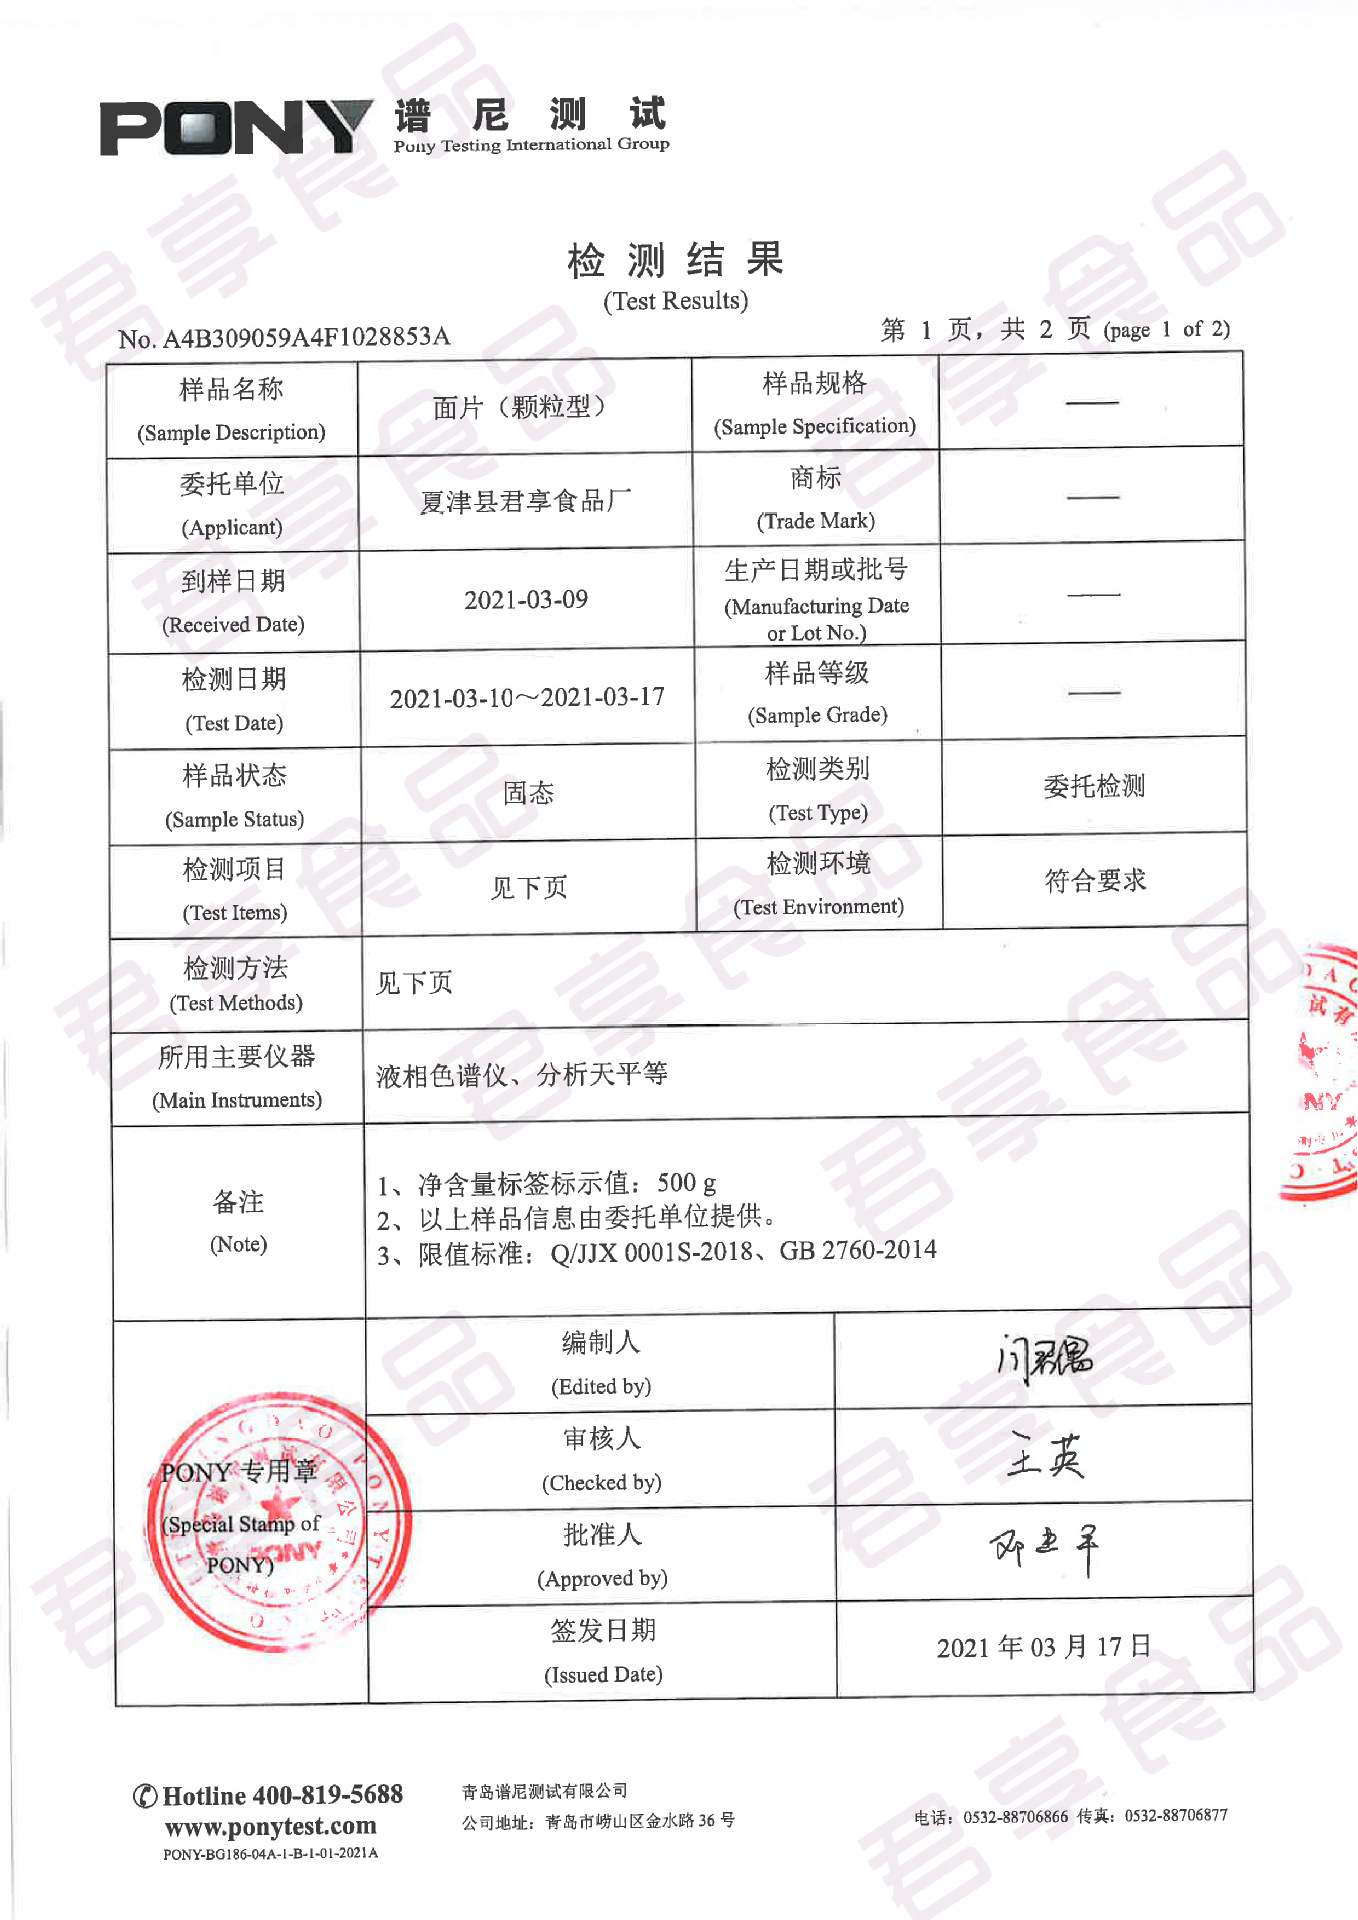 PONY 谱尼测试
Pony Testing International Group
检测结果
(Test Results)
No. A4B309059A4F1028853A
第 1 页，共 2 页 (page 1 of 2)
样品名称
(Sample Description)
面片（颗粒型）
样品规格
(Sample Specification)
——
委托单位
(Applicant)
夏津县君享食品厂
商标
(Trade Mark)
——
到样日期
(Received Date)
2021-03-09
生产日期或批号
(Manufacturing Date
or Lot No.)
——
检测日期
(Test Date)
2021-03-10～2021-03-17
样品等级
(Sample Grade)
——
样品状态
(Sample Status)
固态
检测类别
(Test Type)
委托检测
检测项目
(Test Items)
见下页
检测环境
(Test Environment)
符合要求
检测方法
(Test Methods)
见下页
所用主要仪器
(Main Instruments)
液相色谱仪、分析天平等
备注
(Note)
1、净含量标签标示值：500 g
2、以上样品信息由委托单位提供。
3、限值标准：Q/JJX 0001S-2018、GB 2760-2014
PONY 专用章
(Special Stamp of
PONY)
编制人
(Edited by)
审核人
(Checked by)
王英
批准人
(Approved by)
签发日期
(Issued Date)
2021 年 03 月 17 日
Hotline 400-819-5688
www.ponytest.com
PONY-BG186-04A-1-B-1-01-2021A
青岛谱尼测试有限公司
公司地址：青岛市崂山区金水路 36 号
电话：0532-88706866 传真：0532-88706877
君享食品